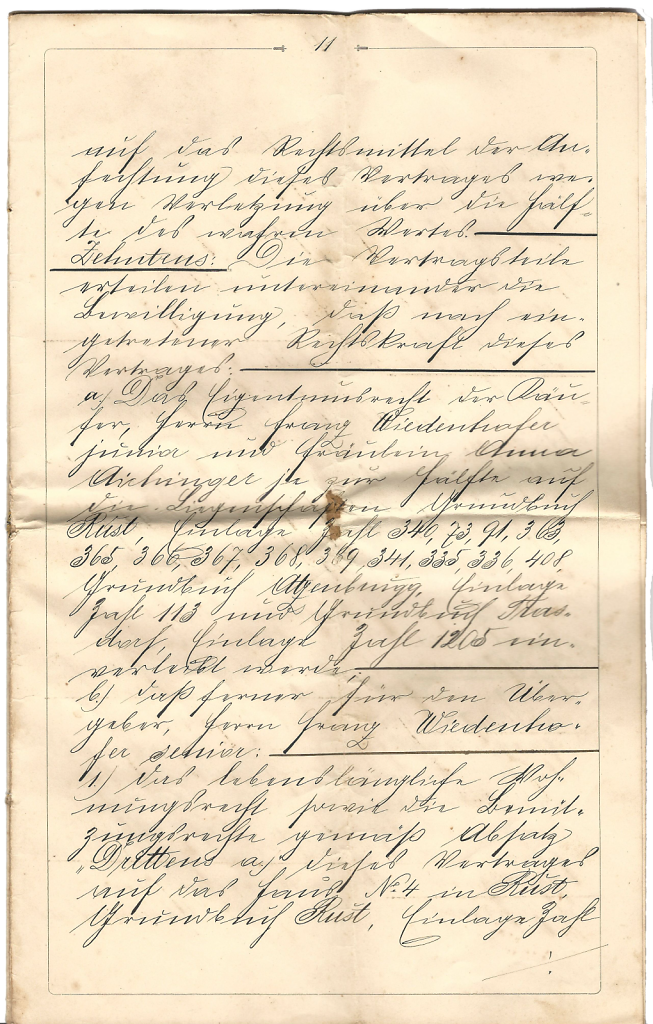 11
auf das Rechtsmittel der An-
fechtung dieses Vertrages we-
gen Verletzung über die Hälf-
te des wahren Wertes.
Zehntens: Die Vertragsteile
erteilen untereinander die
Bewilligung, daß nach ein-
getretener Rechtskraft dieses
Vertrages:
a.) Das Eigentumsrecht der Käu-
fer, Herrn Franz Wiedenhofer
junior und Fräulein Anna
Aichinger je zur Hälfte auf
die Liegenschaften Grundbuch
Rust, Einlage Zahl 340, 73, 91, 363,
365, 366, 367, 368, 369, 341, 335, 336, 408,
Grundbuch Atzenbrugg Einlage
Zahl 113 und Grundbuch Tras-
dorf, Einlage Zahl 1205 ein-
verleibt werde;
b.) daß ferner für den Über-
geber, Herrn Franz Wiedenho-
fer senior:
1.) das lebenslängliche Woh-
nungsrecht sowie die Benüt-
zungsrechte gemäß Absatz
„Drittens a.) dieses Vertrages
auf das Haus No. 4 in Rust,
Grundbuch Rust, Einlage Zahl